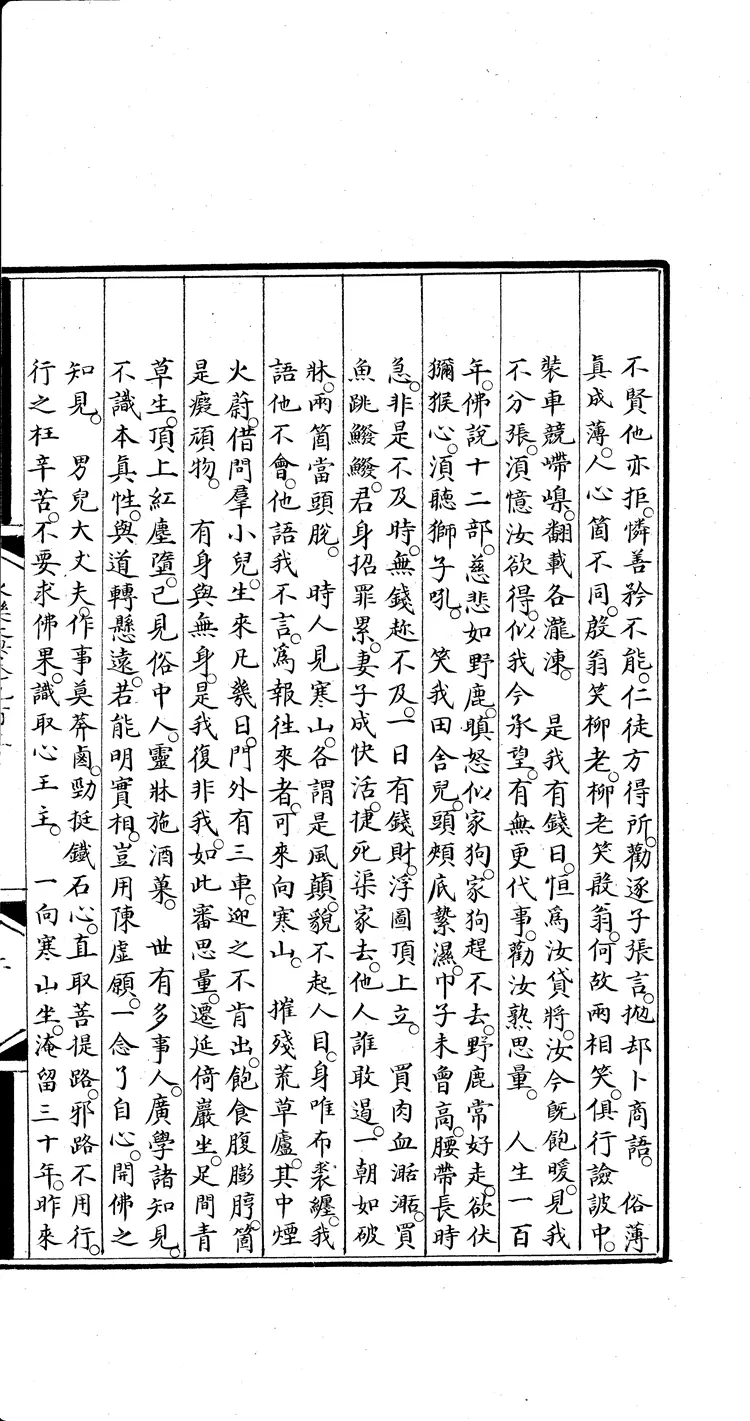 不賢他亦拒。憐善矜不能。仁徒方得所。勸逐子張言。拋却卜商語。　俗薄
眞成薄。人心箇不同。殷翁笑柳老。柳老笑殷翁。何故兩相笑。俱行譣詖中。
裝車競嵽嵲。翻載各瀧涷。　是我有錢日。恒爲汝貸將。汝今旣飽暖。見我
不分張。湏憶汝欲得。似我今承望。有無更代事。勸汝熟思量。　人生一百
年。佛說十二部。慈悲如野鹿。瞋怒似家狗。家狗趕不去。野鹿常好走。欲伏
獼猴心。湏聽獅子吼。　笑我田舍兒。頭頰底縶濕。巾子未曾高。腰帶長時
急。非是不及時。無錢趂不及。一日有錢財。浮圖頂上立。　買肉血𣽅𣽅。買
魚跳鱍鱍。君身招罪累。妻子成快活。㨗死渠家去。他人誰敢遏。一朝如破
牀。兩箇當頭脫。　時人見寒山。各謂是風顛。貌不起人目。身唯布裘纏。我
語他不會。他語我不言。爲報徃來者。可來向寒山。　摧殘荒草廬。其中煙
火蔚。借問羣小兒。生來凡幾日。門外有三車。迎之不肯出。飽食腹膨脝。箇
是癡頑物。　有身與無身。是我復非我。如此審思量。遷延倚巖坐。足間青
草生。頂上紅塵墮。已見俗中人。靈牀施酒菓。　世有多事人。廣學諸知見。
不識本真性。與道轉懸遠。若能明實相。豈用陳虛願。一念了自心。開佛之
知見。　男兒大丈夫。作事莫莽鹵。勁挺鐵石心。直取菩提路。邪路不用行。
行之枉辛苦。不要求佛果。識取心王主。　一向寒山坐。淹留三十年。昨來